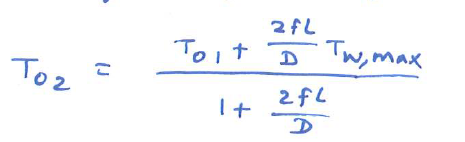 T02 = (T01 + (2fL/D) Tw,max) / (1 + 2fL/D)